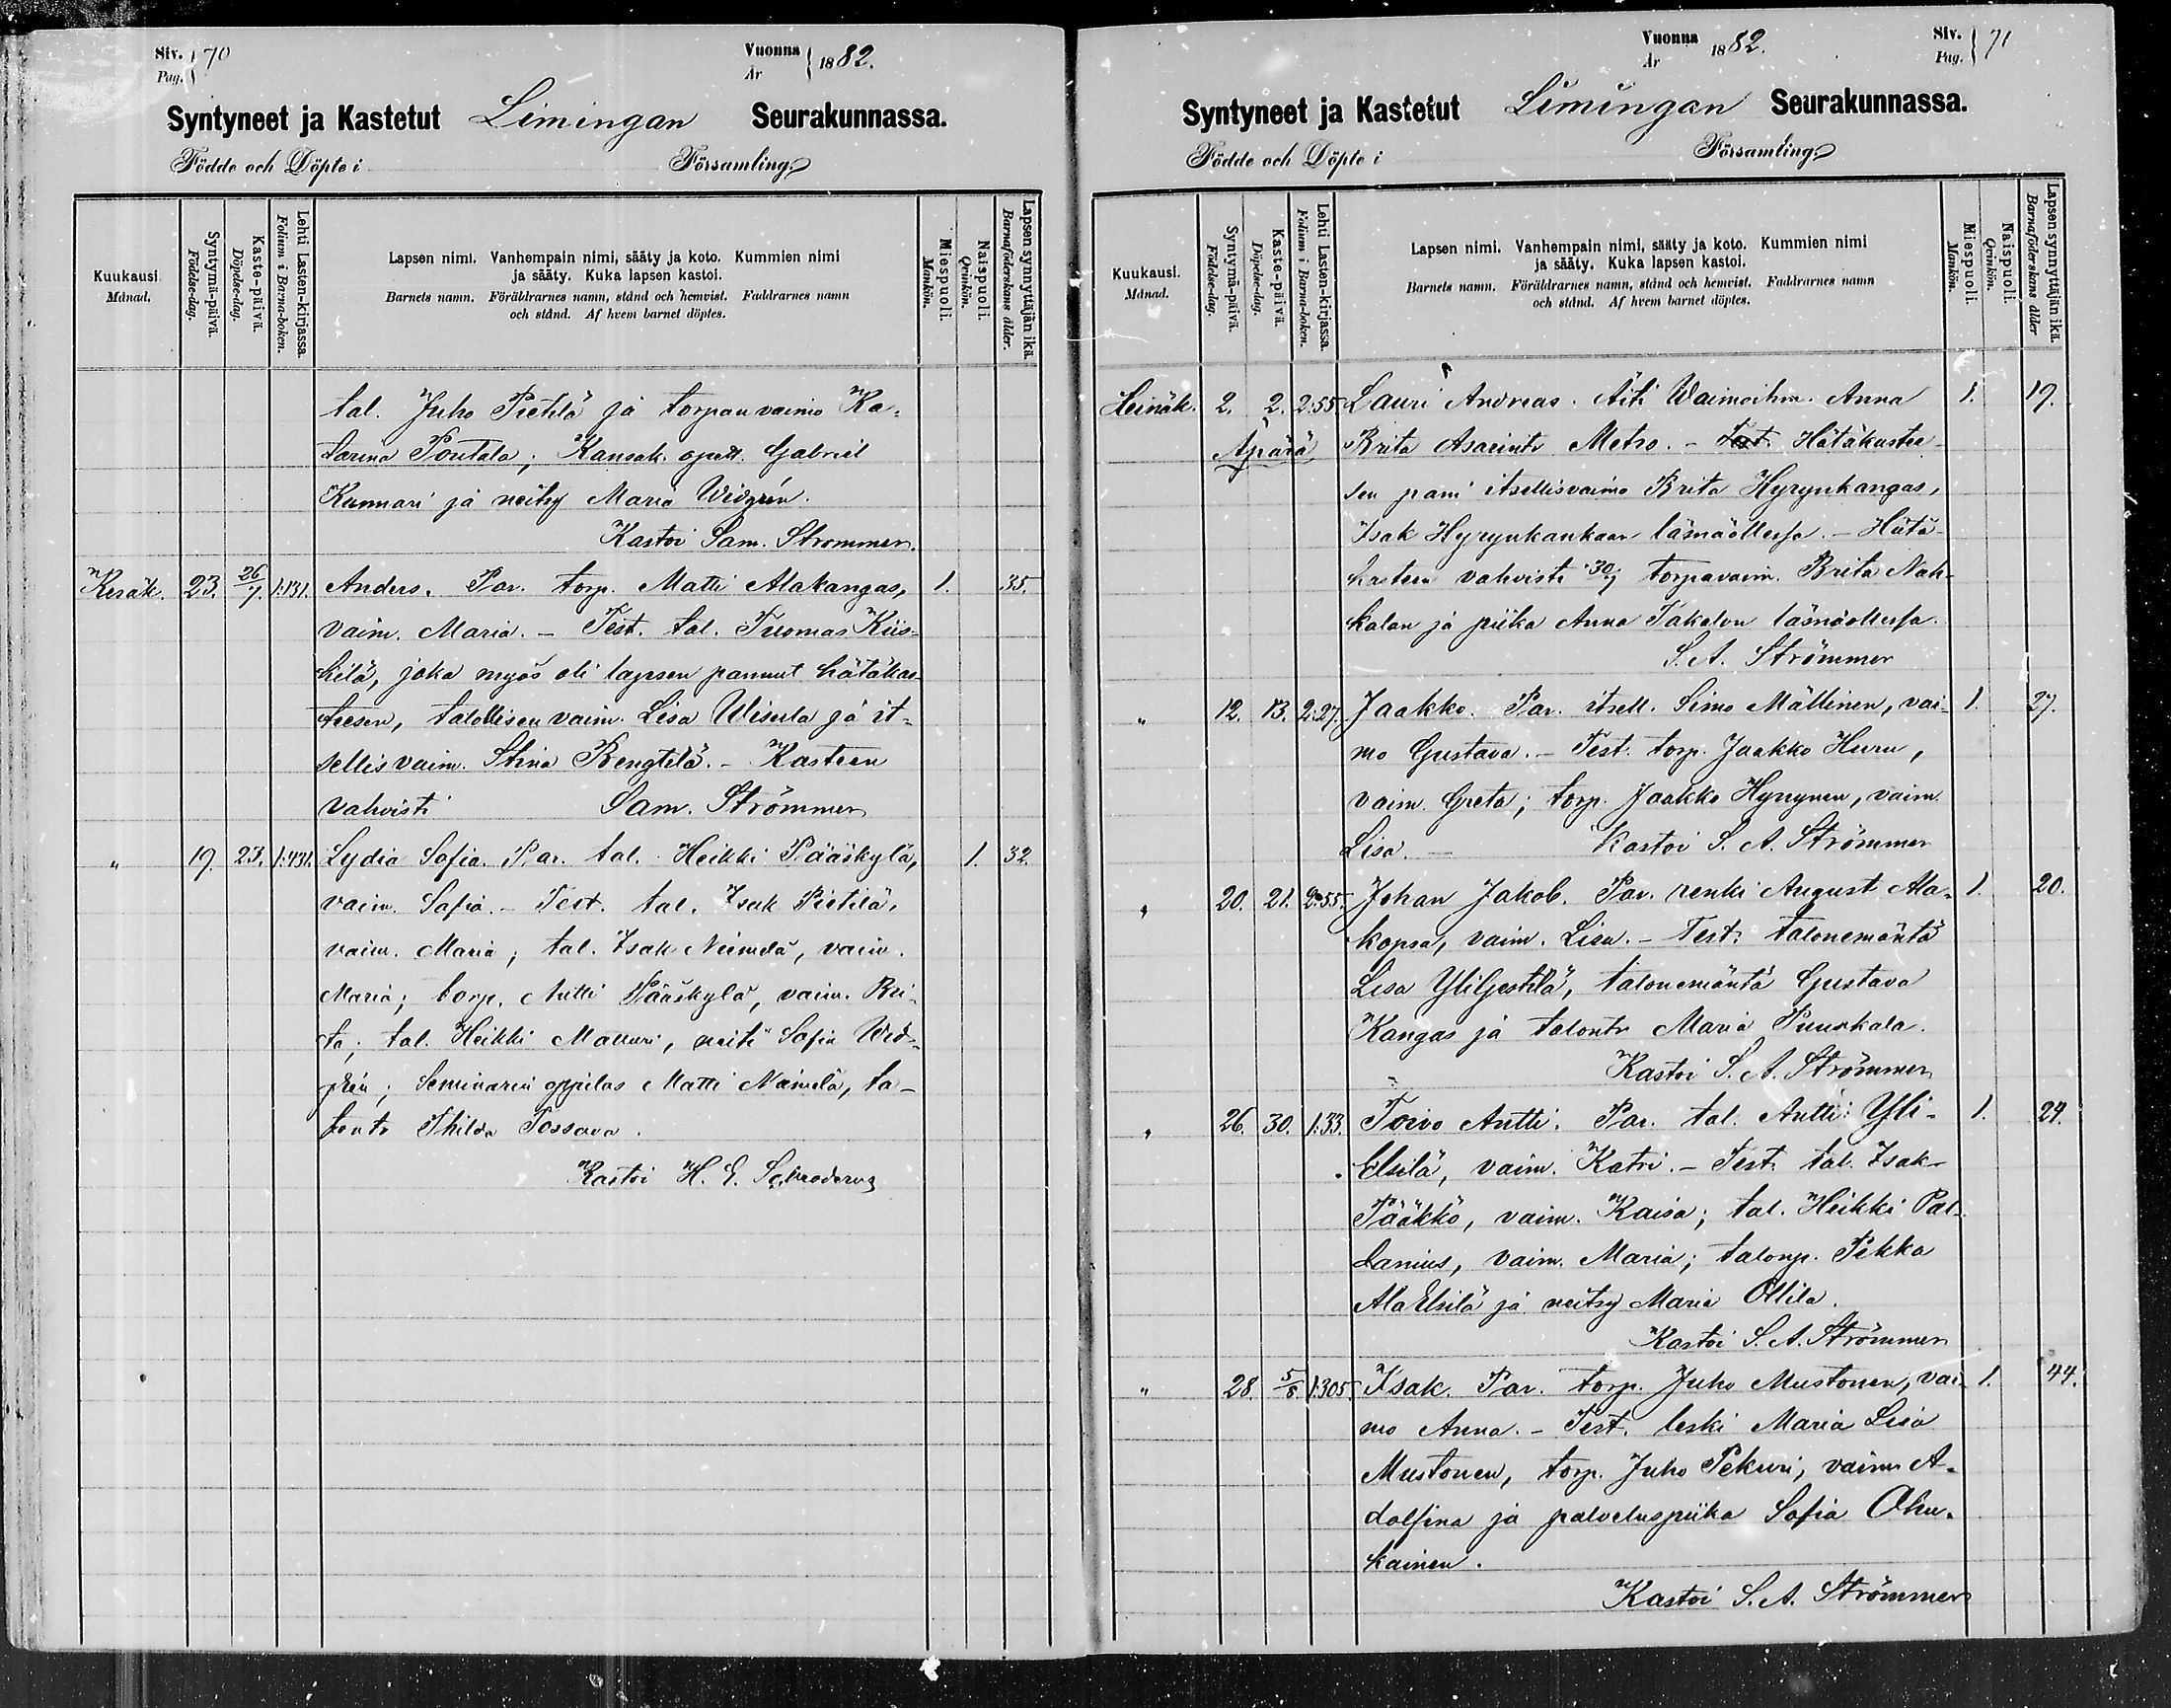 Siv. 70 Vuonna 1882.
Pag. År
Syntyneet ja Kastetut Limingan Seurakunnassa.
Födde och Döpte i Församling
Kuukausi. Månad.
Syntymä-päivä. Födelse-dag.
Kaste-päivä. Döpelse-dag.
Lehti Lasten-kirjassa. Folium i Barna-boken.
Lapsen nimi. Vanhempain nimi, sääty ja koto. Kummien nimi
ja sääty. Kuka lapsen kastoi.
Barnets namn. Föräldrarnes namn, stånd och hemvist. Faddrarnes namn
och stånd. Af hvem barnet döptes.
Miespuoli. Mankön.
Naispuoli. Qvinkön.
Lapsen synnyttäjän ikä. Barnaföderskans ålder.
tal. Juho Pietilä ja torpan vaimo Ka-
tarina Poutala; Kansak. opett. Gabriel
Kunnari ja neitsy Maria Widgrén.
Kastoi Sam. Strömmer.
Kesäk. 23. 26/7. 1:131. Anders. Par. torp. Matti Alakangas, 1. 35.
vaim. Maria. – Test. tal. Tuomas Kiis-
kilä, joka myös oli lapsen pannut hätäkas-
teesen, talollisen vaim. Lisa Wisula ja it-
sellis vaim. Stina Bengtilä. – Kasteen
vahvisti Sam. Strömmer
" 19. 23. 1:431. Lydia Sofia. Par. tal. Heikki Pääskylä, 1. 32.
vaim. Sofia. – Test. tal. Isak Pietilä,
vaim. Maria; tal. Isak Niemelä, vaim.
Maria; torp. Antti Pääskylä, vaim. Bri-
ta; tal. Heikki Matturi, neiti Sofia Wid-
grén; Seminarin oppilas Matti Niemelä, ta-
lontr Thilda Tossava.
Kastoi H. E. Schroderus
Vuonna 1882. Siv. 71
År Pag.
Syntyneet ja Kastetut Limingan Seurakunnassa.
Födde och Döpte i Församling
Kuukausi. Månad.
Syntymä-päivä. Födelse-dag.
Kaste-päivä. Döpelse-dag.
Lehti Lasten-kirjassa. Folium i Barna-boken.
Lapsen nimi. Vanhempain nimi, sääty ja koto. Kummien nimi
ja sääty. Kuka lapsen kastoi.
Barnets namn. Föräldrarnes namn, stånd och hemvist. Faddrarnes namn
och stånd. Af hvem barnet döptes.
Miespuoli. Mankön.
Naispuoli. Qvinkön.
Lapsen synnyttäjän ikä. Barnaföderskans ålder
Heinäk. 2. 2. 2:55 Lauri Andreas. Äiti Waimoihm. Anna 1. 19.
Äpärä Brita Asarintr Metso. – Hätäkastee-
sen pani itsellisvaimo Brita Hyrynkangas,
Isak Hyrynkankaan läsnäollessa. – Hätä-
kasteen vahvisti 30/7 torpavaim. Brita Nah-
kalan ja piika Anna Takalon läsnäollessa.
S. A. Strömmer
" 12. 13. 2:27. Jaakko. Par. itsell. Simo Mällinen, vai- 1. 27.
mo Gustava. – Test. torp. Jaakko Huru,
vaim. Greta; torp. Jaakko Hyrynen, vaim.
Lisa. – Kastoi S. A. Strömmer
" 20. 21. 2:55. Johan Jakob. Par. renki August Ala- 1. 20.
kopsa, vaim. Lisa. – Test. talonemäntä
Lisa Yliljestilä, talonemäntä Gustava
Kangas ja talontr Maria Puuskala.
Kastoi S. A. Strömmer
" 26. 30. 1:33. Toivo Antti. Par. tal. Antti Yli- 1. 24.
Elsilä, vaim. Katri. – Test. tal. Isak
Pääkkö, vaim. Kaisa; tal. Heikki Pal-
danius, vaim. Maria; talonp. Pekka
Ala Elsilä ja neitsy Maria Ollila.
Kastoi S. A. Strömmer
" 28. 5/8. 1:305. Isak. Par. torp. Juho Mustonen, vai- 1. 44.
mo Anna. – Test. leski Maria Lisa
Mustonen, torp. Juho Pekuri, vaim A-
dolfina ja palveluspiika Sofia Ohu-
kainen.
Kastoi S. A. Strömmer